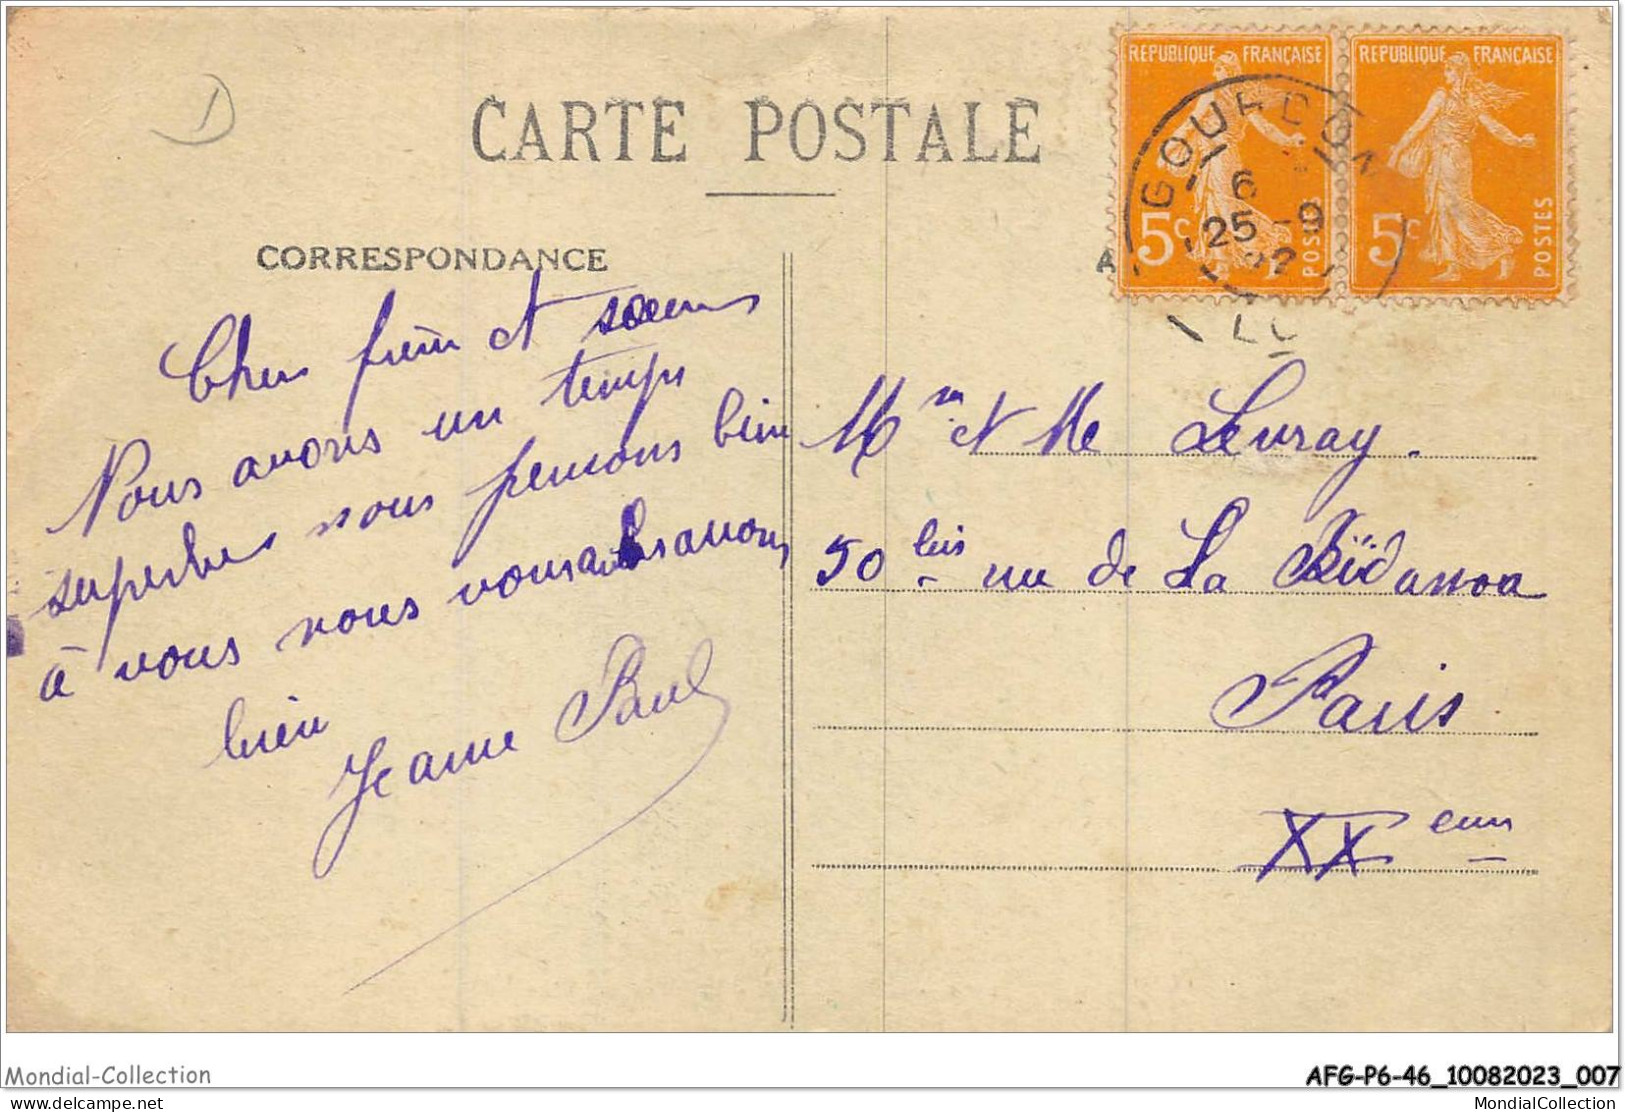 D
CARTE POSTALE
RÉPUBLIQUE FRANÇAISE
5c POSTES
RÉPUBLIQUE FRANÇAISE
5c POSTES
GOURDON
6
25-9
22
CORRESPONDANCE
Cher frère et soeurs
Nous avons un temps
superbe nous pensons bien
à vous nous vous
bien
Jeanne Paul
Mr et Me Levray.
50 bis rue de La Bidassoa
Paris
XXeme
Mondial-Collection
AFG-P6-46_10082023_007
delcampe.net
MondialCollection